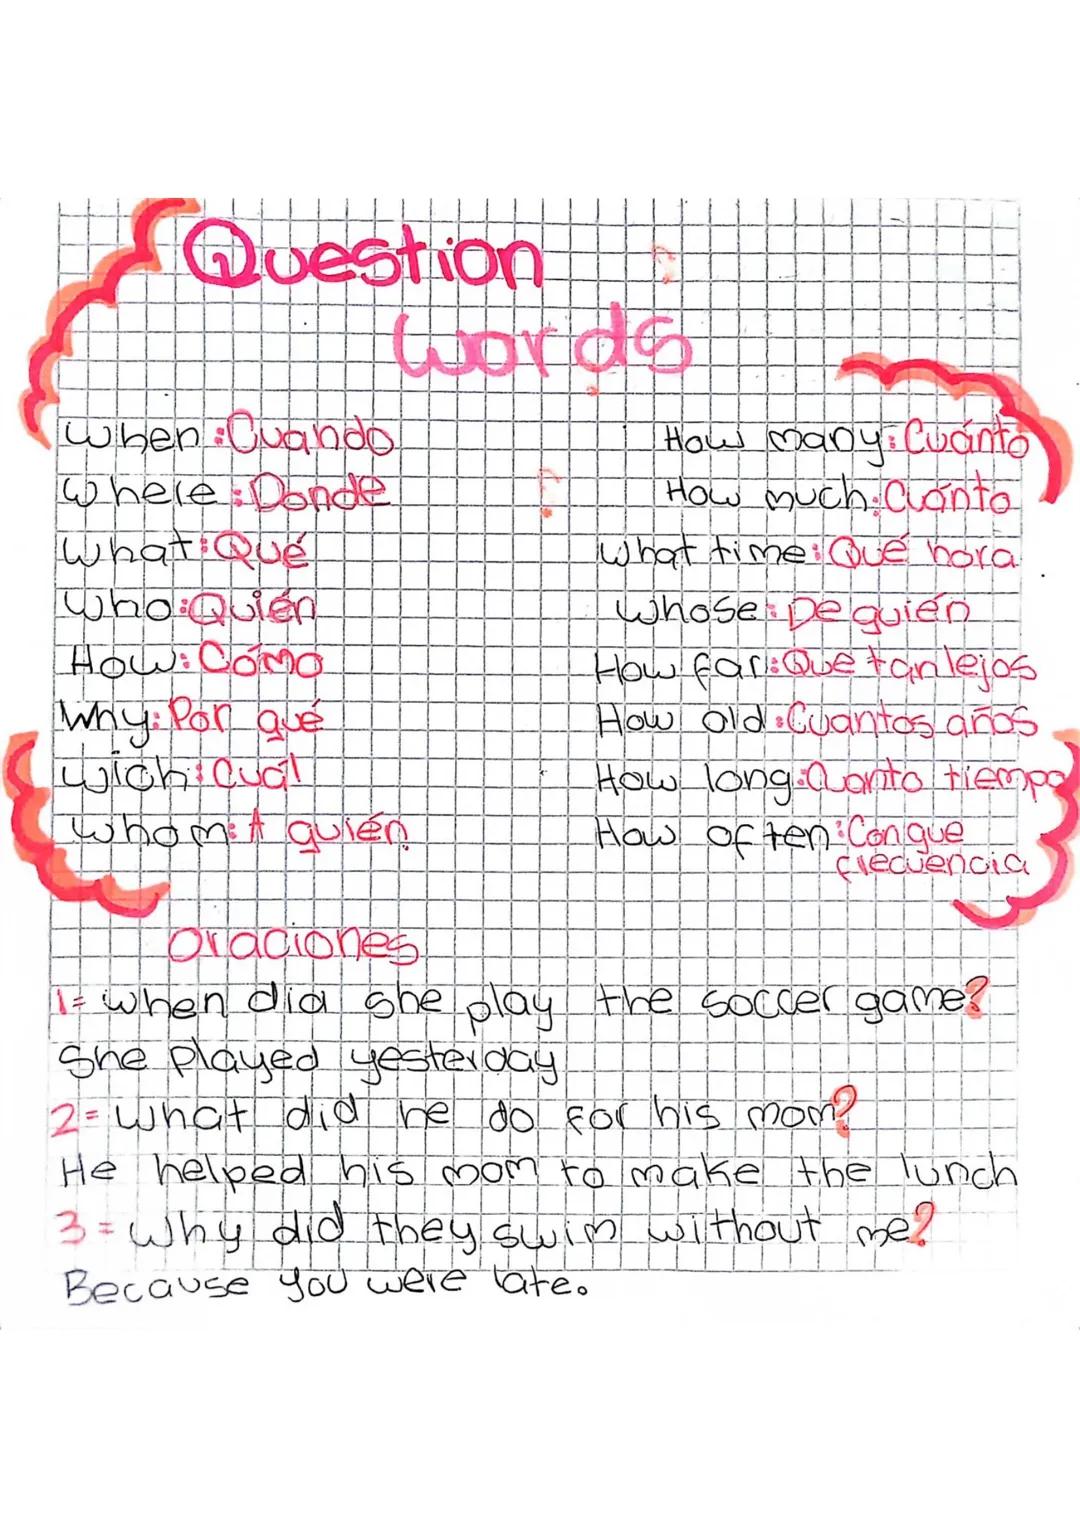 Question
words
when: Cuando
where: Donde
What: Qué
Who: Quién
How: Cómo
Why: Por qué
wich: Cuál
whom: A quién
How many: Cuánto
How much: Cuánto
What time: Qué hora
Whose: De quién
How far: Que tan lejos
How old: Cuantos años
How long: Cuanto tiempo
How often: Con que
frecuencia
Oraciones
1= when did she play the soccer game?
She played yesterday
2= What did he do for his mom?
He helped his mom to make the lunch
3= Why did they swim without me?
Because you were late.